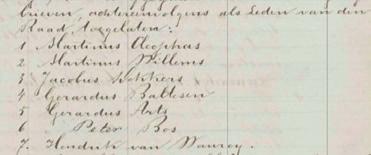 brieven, achtereenvolgens als Leden van den
Raad, toegelaten:
1 Martinus Cleophas
2 Martinus Willems
3 Jacobus Wekkers
4 Gerardus Baltesen
5 Gerardus Arts
6 Peter Bos
7. Hendrik van Wanroy.